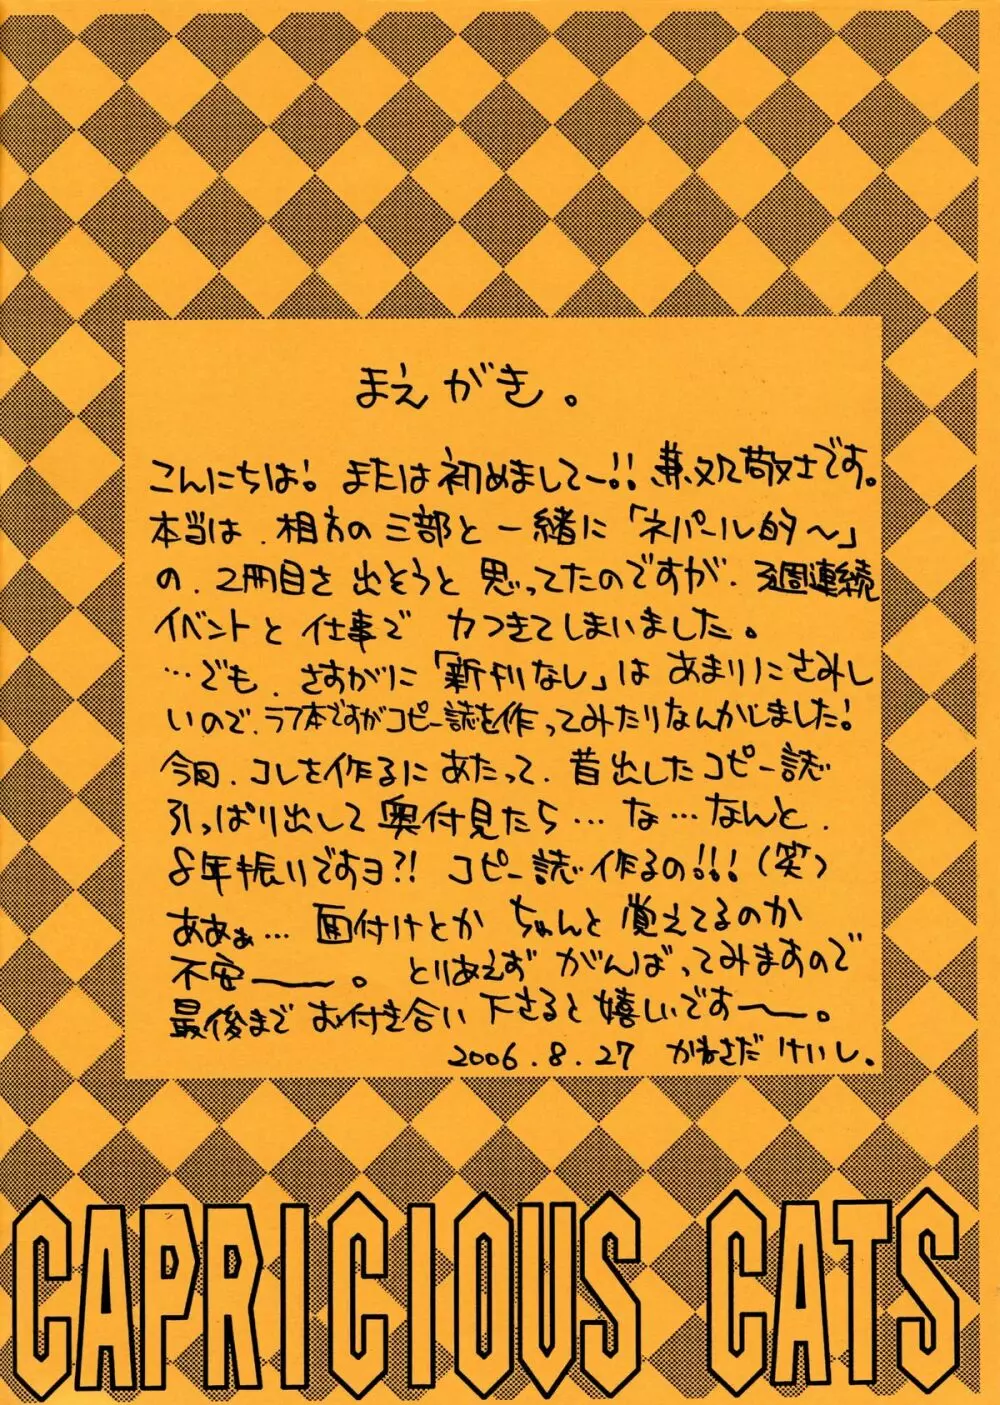 まえがき。
こんにちは! または初めまして～!! 兼処敬士です。
本当は、相方の三部と一緒に「ネパール的～」
の、2冊目を出そうと思ってたのですが、3週連続
イベントと仕事で力つきてしまいました。
…でも、さすがに「新刊なし」はあまりにさみし
いので、ラフ本ですがコピー誌を作ってみたりなんかしました!
今回、コレを作るにあたって、昔出したコピー誌
引っぱり出して奥付見たら…な…なんと、
8年振りですヨ?! コピー誌作るの!!! (笑)
ああぁ… 面付けとか ちゃんと覚えてるのか
不安――。とりあえず がんばってみますので
最後まで お付き合い下さると嬉しいです――。
2006.8.27 かねさだ けいし。
CAPRICIOUS CATS